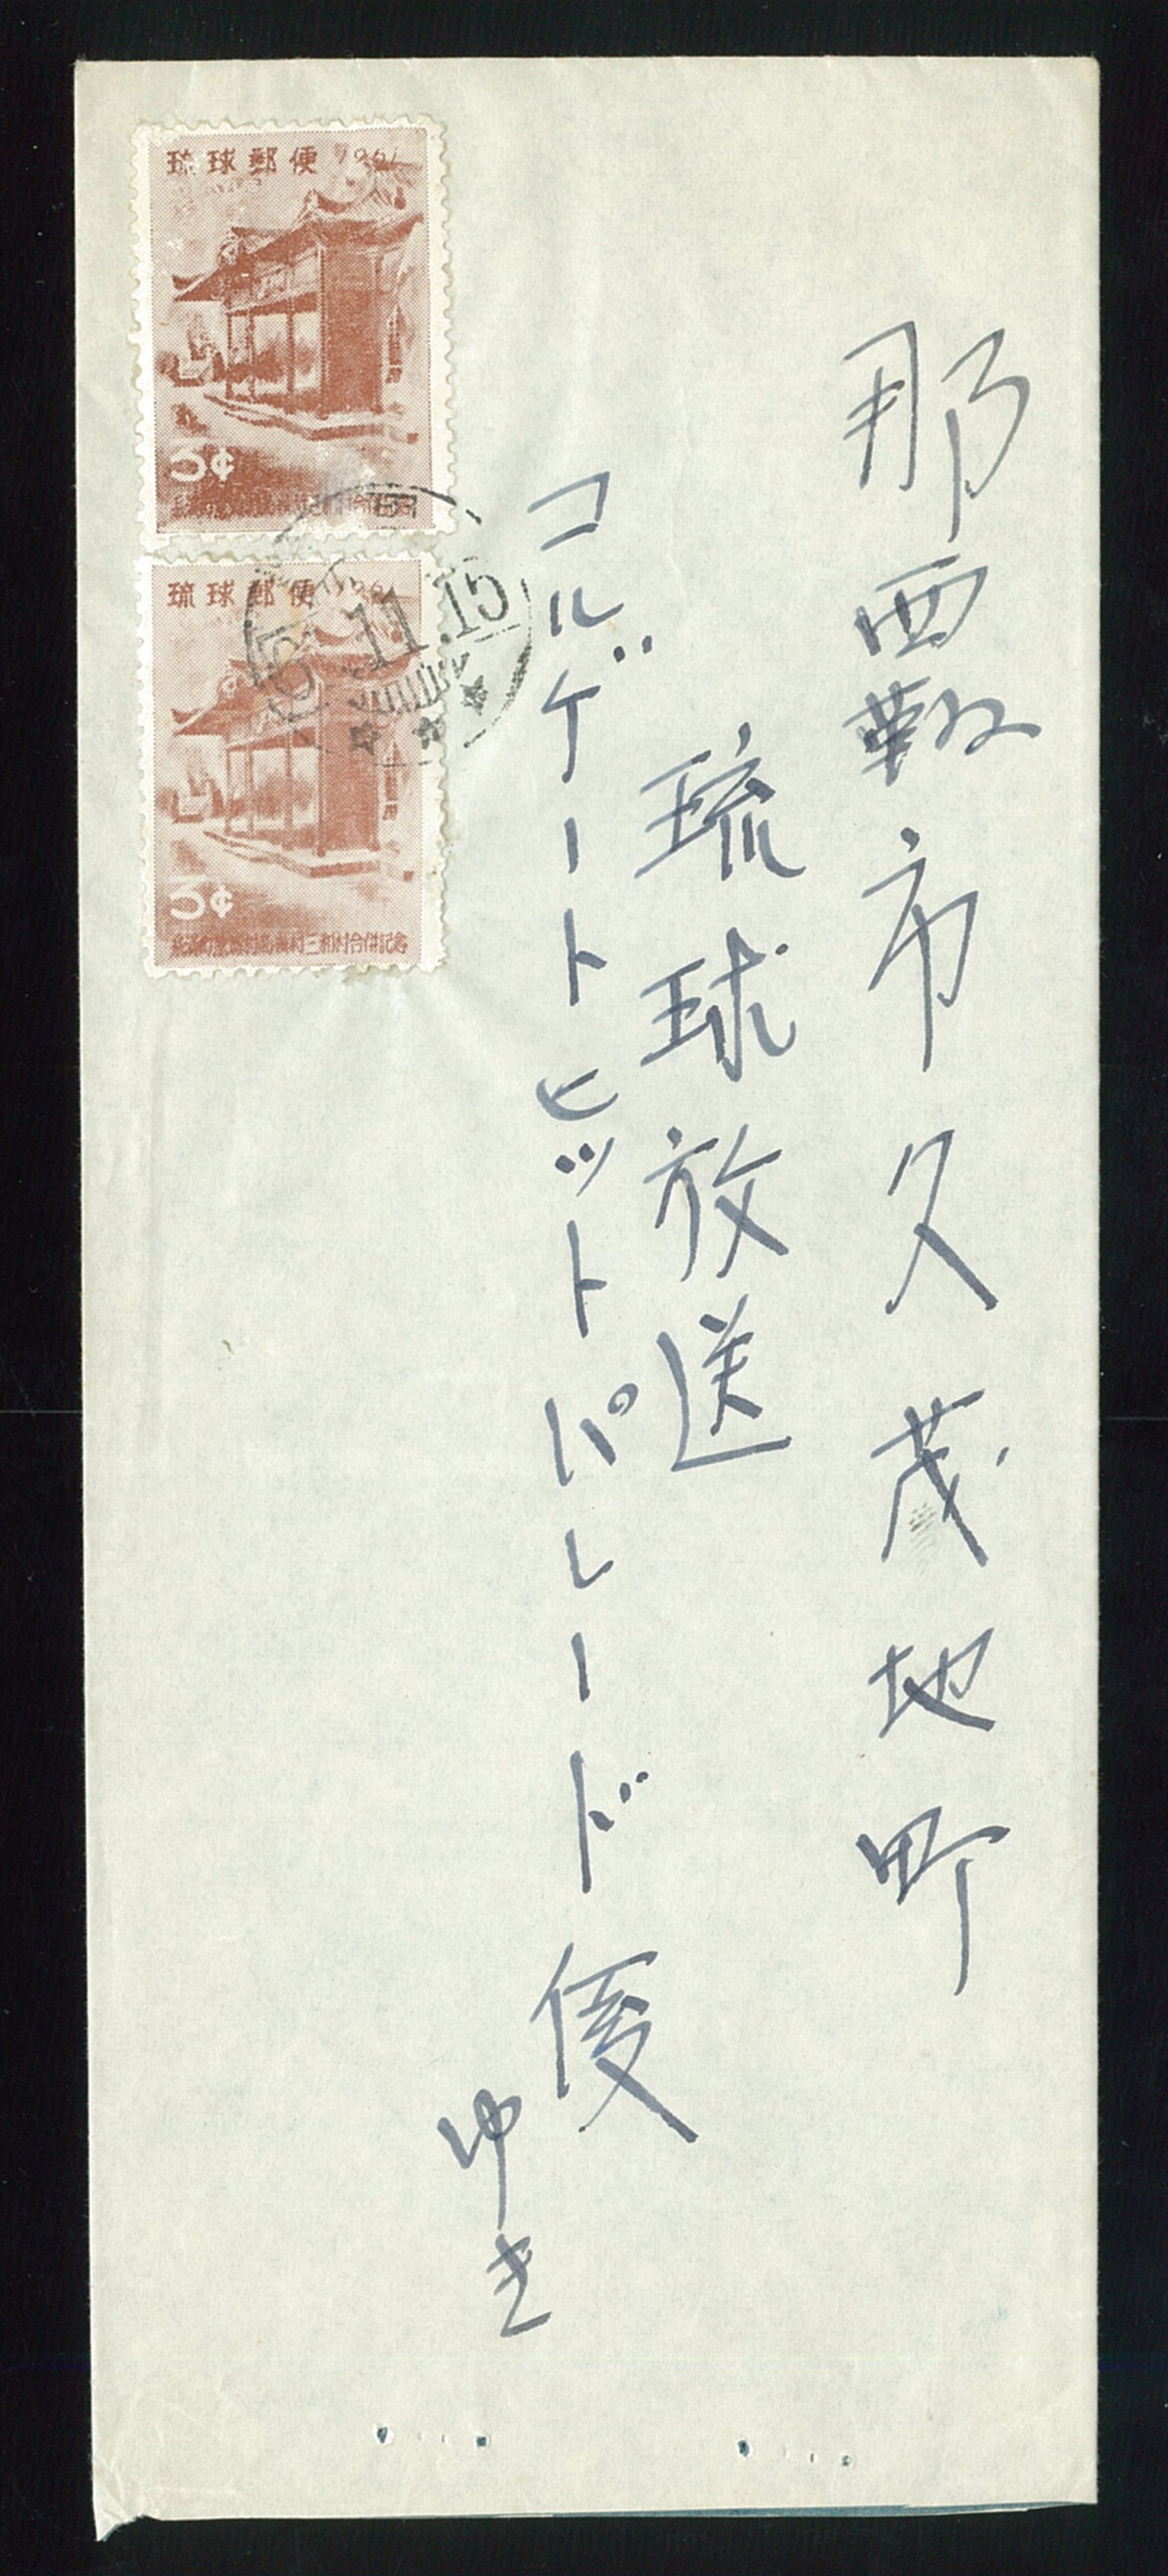 那覇市久茂地町
琉球放送
コルゲートヒットパレード係
ゆき
琉球郵便 1961
3¢
琉球郵便 1961
3¢
糸満町兼城村高嶺村三和村合併記念
11.15